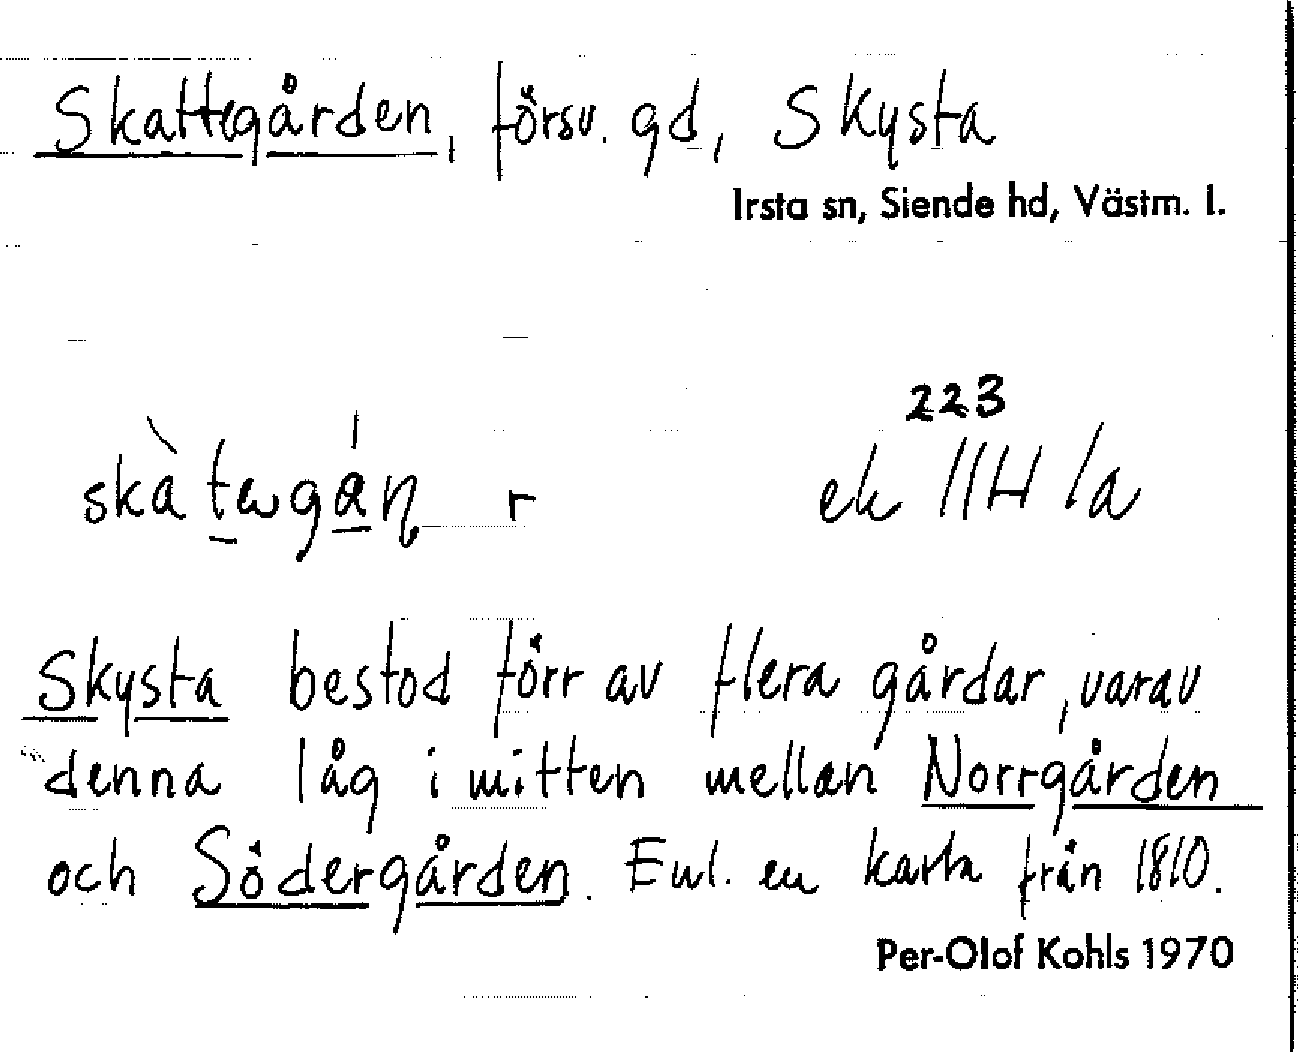 Skattegården, försv. gd, Skysta
Irsta sn, Siende hd, Västm. l.
223
skàtegån r ek 11H 1a
Skysta bestod förr av flera gårdar, varav
denna låg i mitten mellan Norrgården
och Södergården. Enl. en karta från 1810.
Per-Olof Kohls 1970